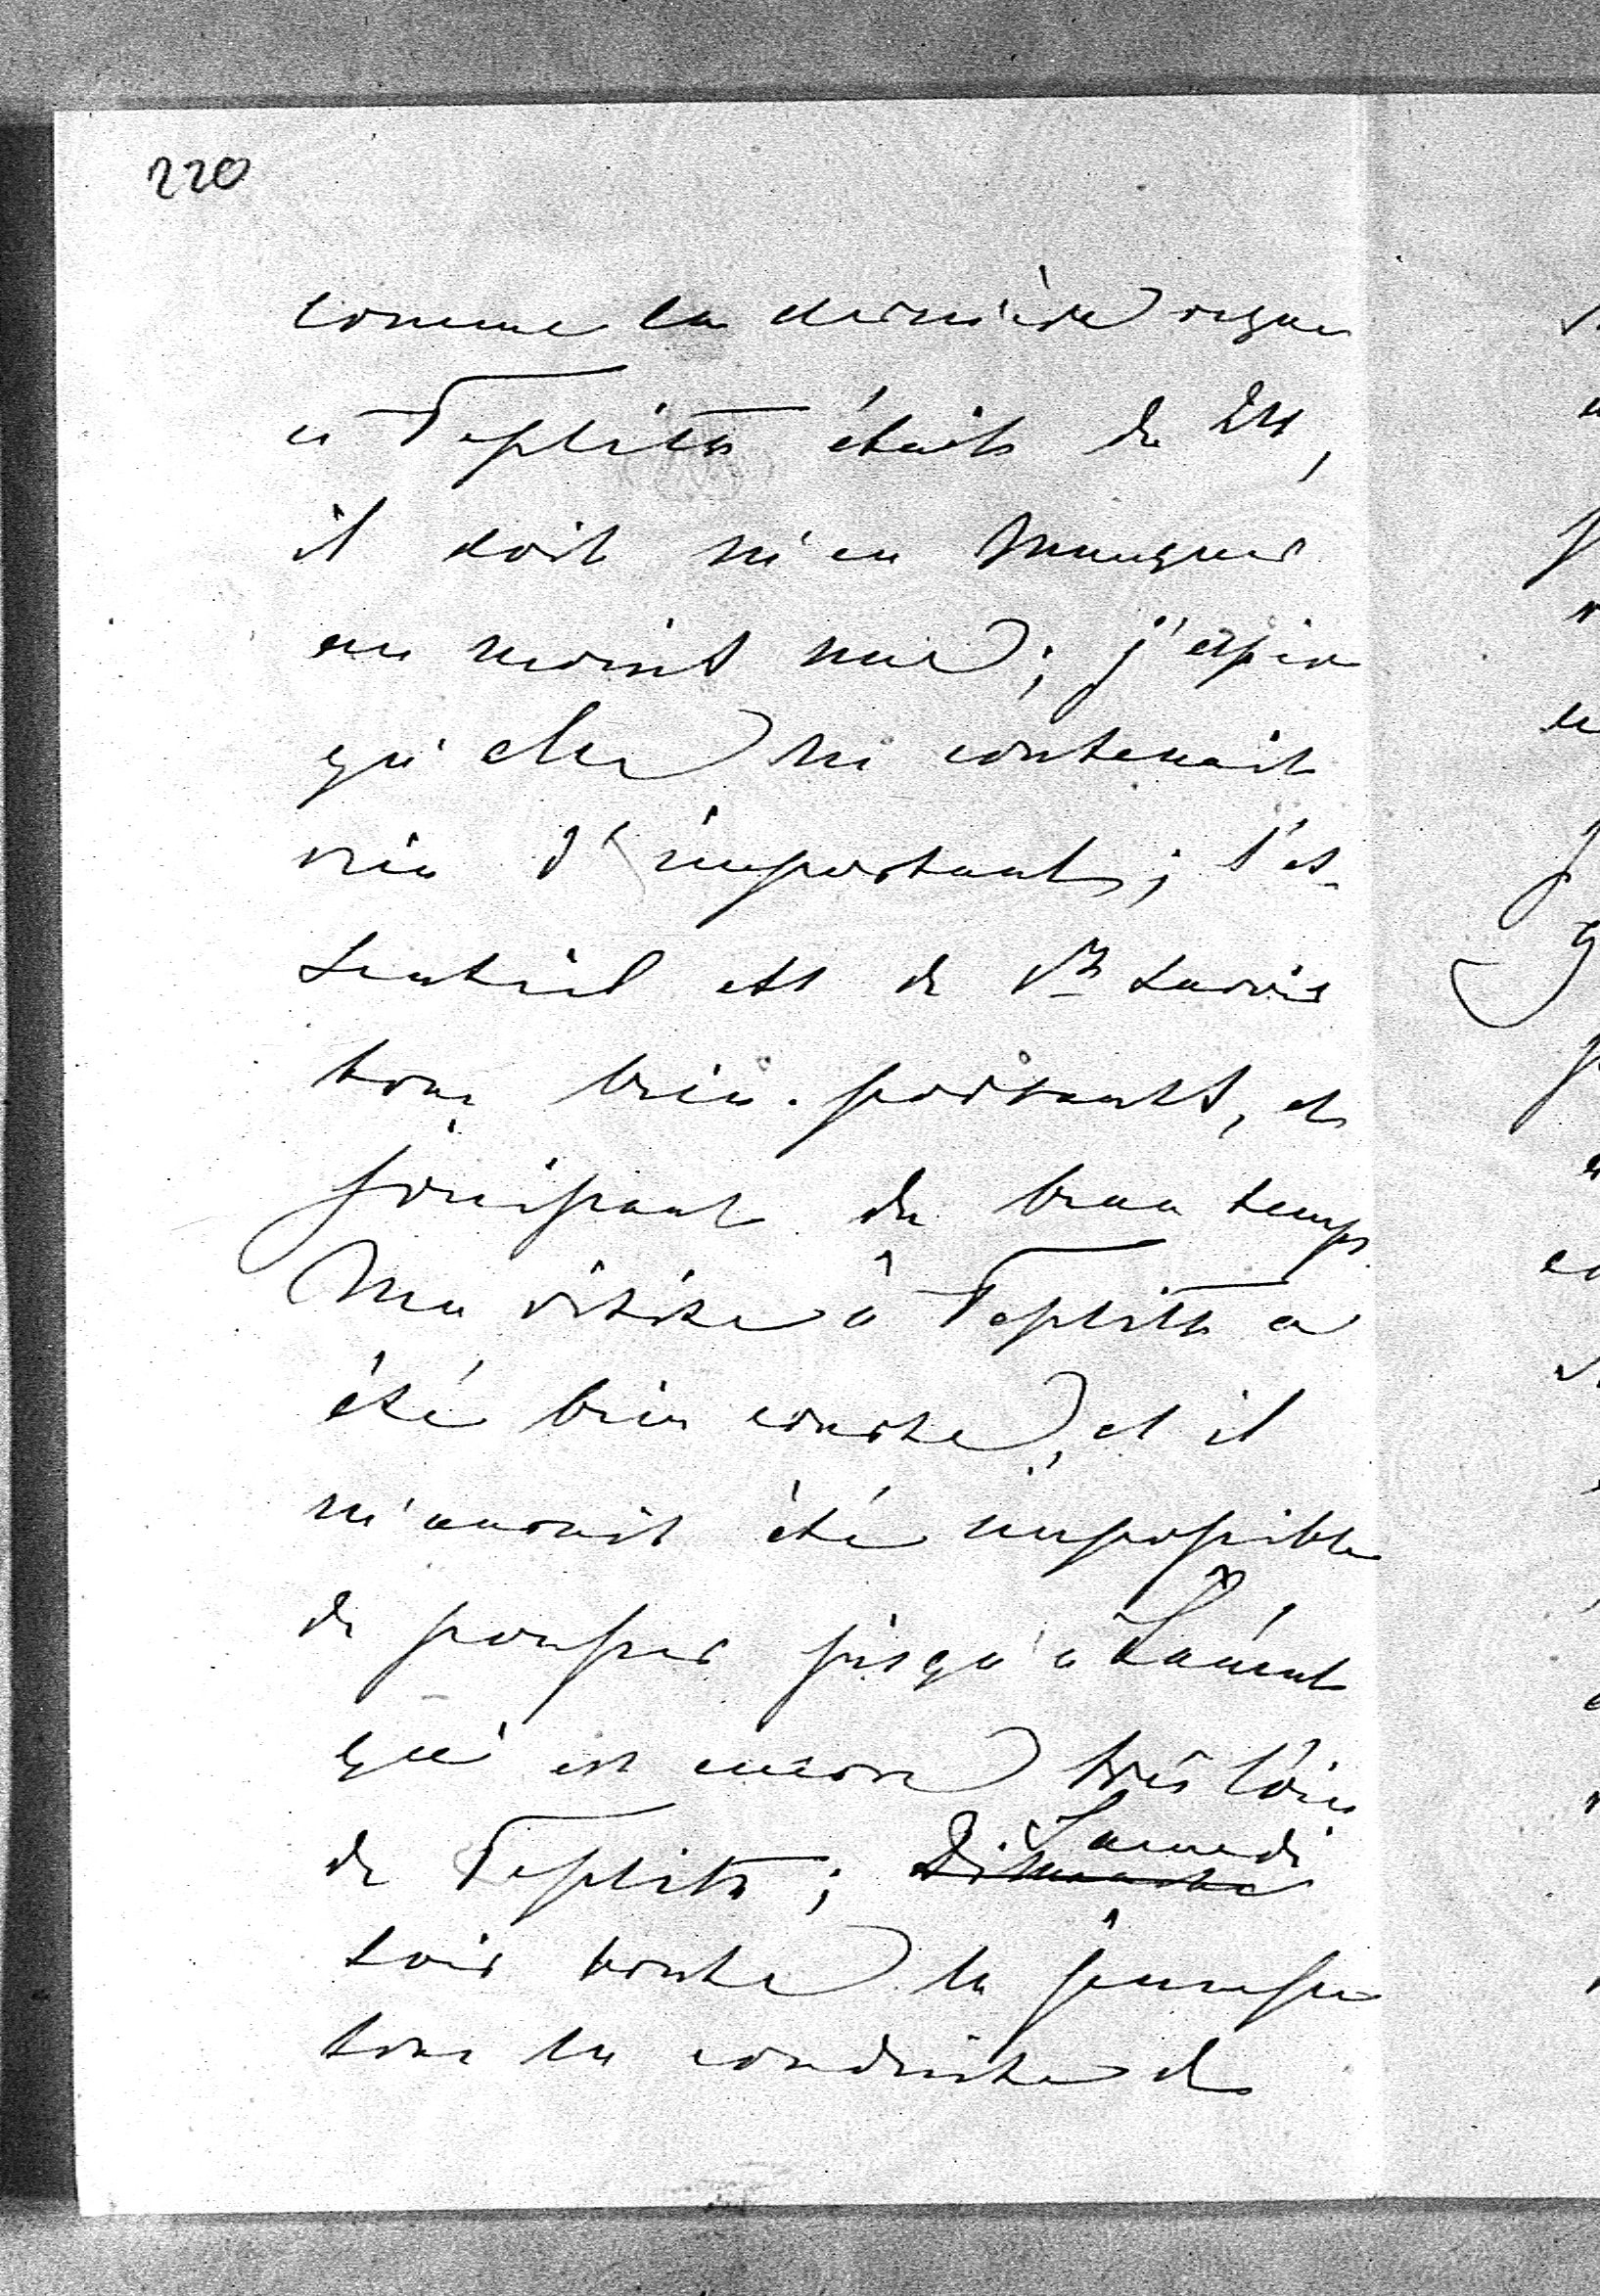 220
comme la dernière reçue
à Teplitz était du 24,
il doit m'en manquer
au moins une; j'espère
qu'elle ne contenait
rien d'important; l'es-
sentiel est de vs savoir
tous bien-portants, et
jouissant du beau temps.
Ma visite à Teplitz a
été bien courte, et il
m'aurait été impossible
de pousser jusqu'à
qui est encore très loin
de Teplitz; Dimanche Samedi
soir toute la jeunesse
sous la conduite de